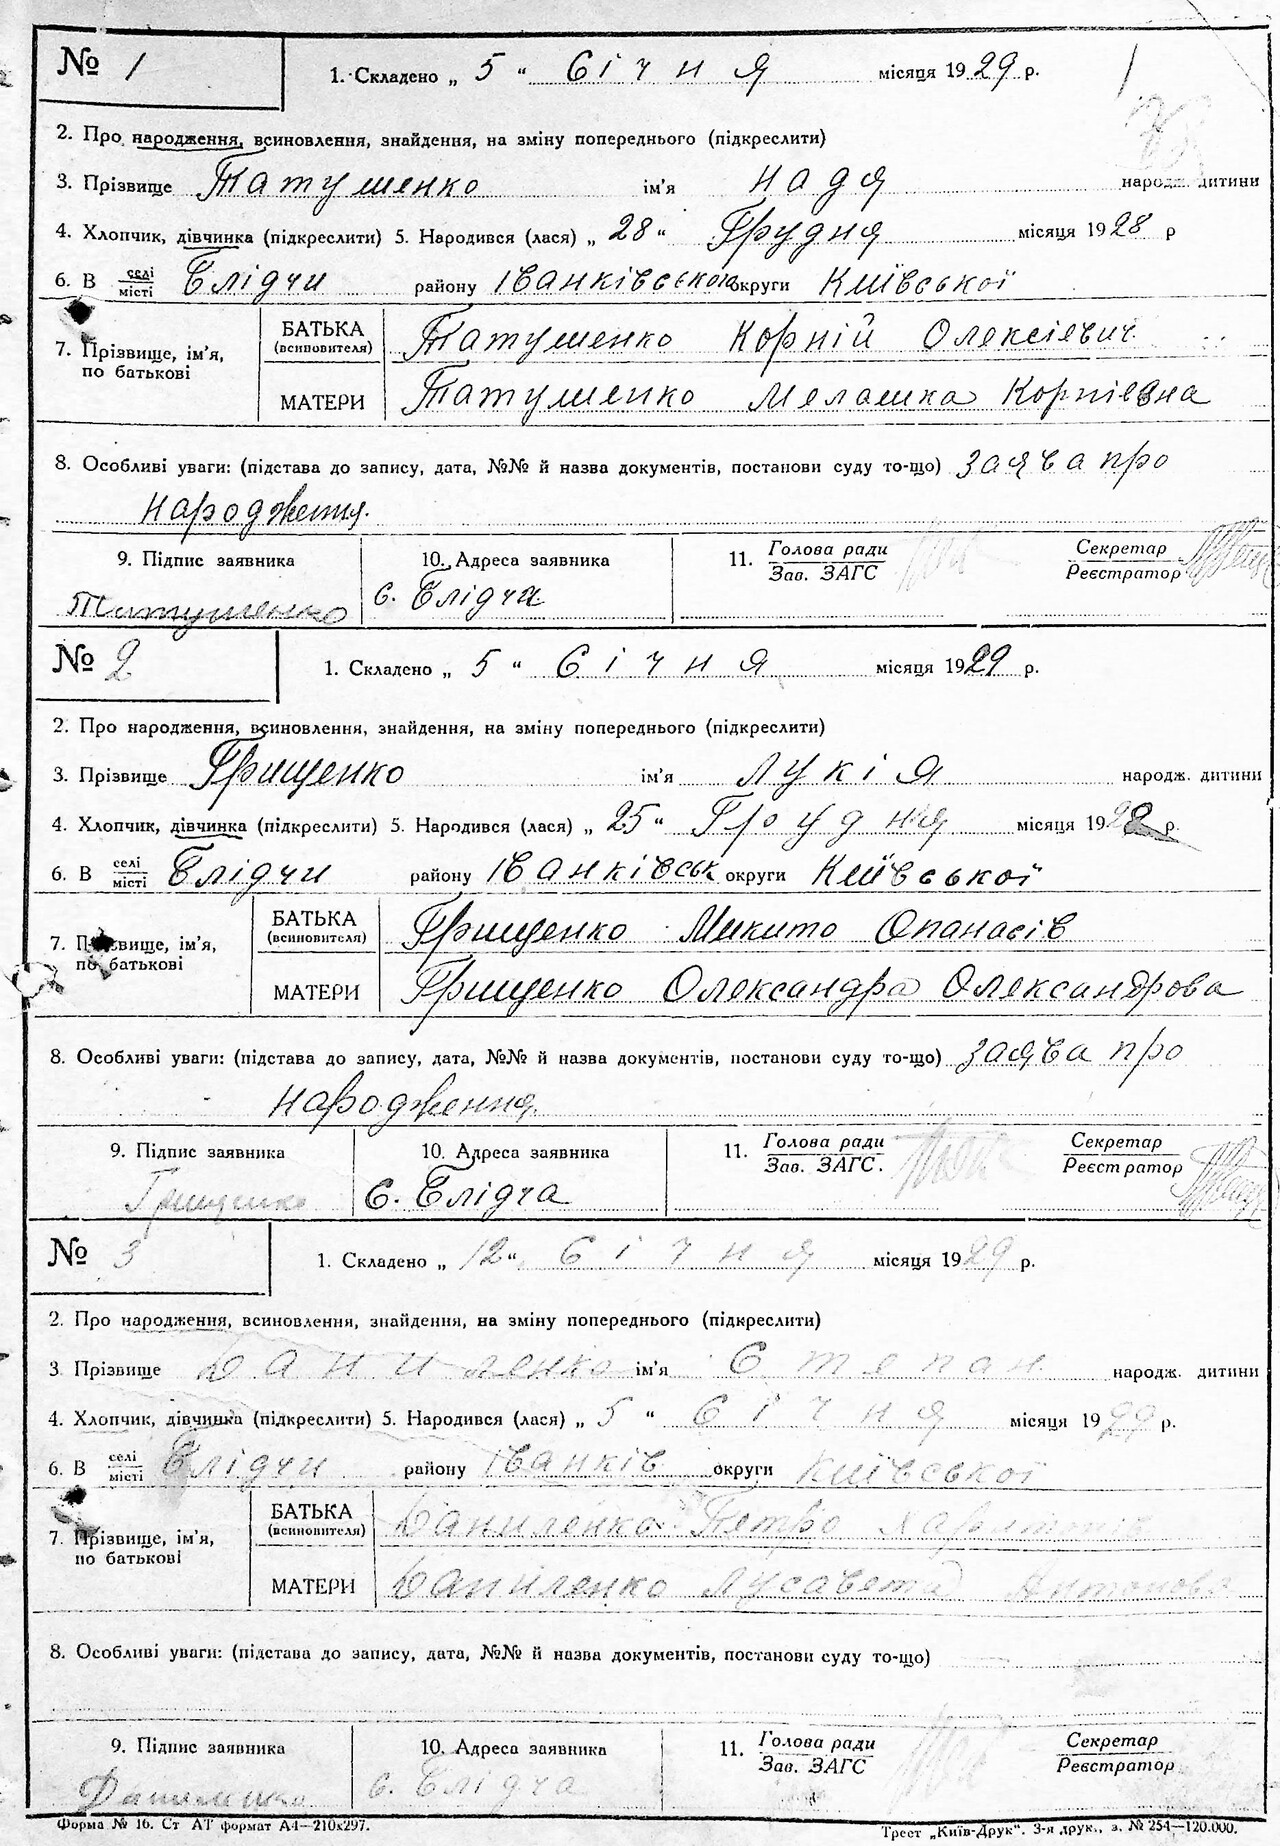 № 1 1. Складено „ 5 “ Січня місяця 1929 р. 1
2. Про народження, всиновлення, знайдення, на зміну попереднього (підкреслити)
3. Прізвище Татушенко ім’я Надя народж. дитини
4. Хлопчик, дівчинка (підкреслити) 5. Народився (лася) „ 28 “ Грудня місяця 1928 р
6. В селі/місті Блідчи району Іванківського округи Київської
7. Прізвище, ім’я, по батькові
БАТЬКА (всиновителя) Татушенко Корній Олексієвич
МАТЕРИ Татушенко Мелашка Корнієвна
8. Особливі уваги: (підстава до запису, дата, №№ й назва документів, постанови суду то-що) заява про
народження.
9. Підпис заявника 10. Адреса заявника 11. Голова ради/Зав. ЗАГС Секретар/Реєстратор
Татушенко с. Блідча
№ 2 1. Складено „ 5 “ Січня місяця 1929 р.
2. Про народження, всиновлення, знайдення, на зміну попереднього (підкреслити)
3. Прізвище Грищенко ім’я Лукія народж. дитини
4. Хлопчик, дівчинка (підкреслити) 5. Народився (лася) „ 25 “ Грудня місяця 1928 р.
6. В селі/місті Блідчи району Іванківськ округи Київської
7. Прізвище, ім’я, по батькові
БАТЬКА (всиновителя) Грищенко Микито Опанасів
МАТЕРИ Грищенко Олександра Олександрова
8. Особливі уваги: (підстава до запису, дата, №№ й назва документів, постанови суду то-що) заява про
народження.
9. Підпис заявника 10. Адреса заявника 11. Голова ради/Зав. ЗАГС. Секретар/Реєстратор
Грищенко с. Блідча
№ 3 1. Складено „ 12 “ Січня місяця 1929 р.
2. Про народження, всиновлення, знайдення, на зміну попереднього (підкреслити)
3 Прізвище Даниленко ім’я Степан народж. дитини
4. Хлопчик, дівчинка (підкреслити) 5. Народився (лася) „ 5 “ Січня місяця 1929 р.
6. В селі/місті Блідчи району Іванків округи Київської
7. Прізвище, ім’я, по батькові
БАТЬКА (всиновителя) Даниленко Петро Харитонів
МАТЕРИ Даниленко Лусавета Антонова
8. Особливі уваги: (підстава до запису, дата, №№ й назва документів, постанови суду то-що)
9. Підпис заявника 10. Адреса заявника 11. Голова ради/Зав. ЗАГС Секретар/Реєстратор
Даниленко с. Блідча
Форма № 16. Ст АТ формат А4—210х297. Трест „Київ-Друк“. 3-я друк., з. № 254—120.000.